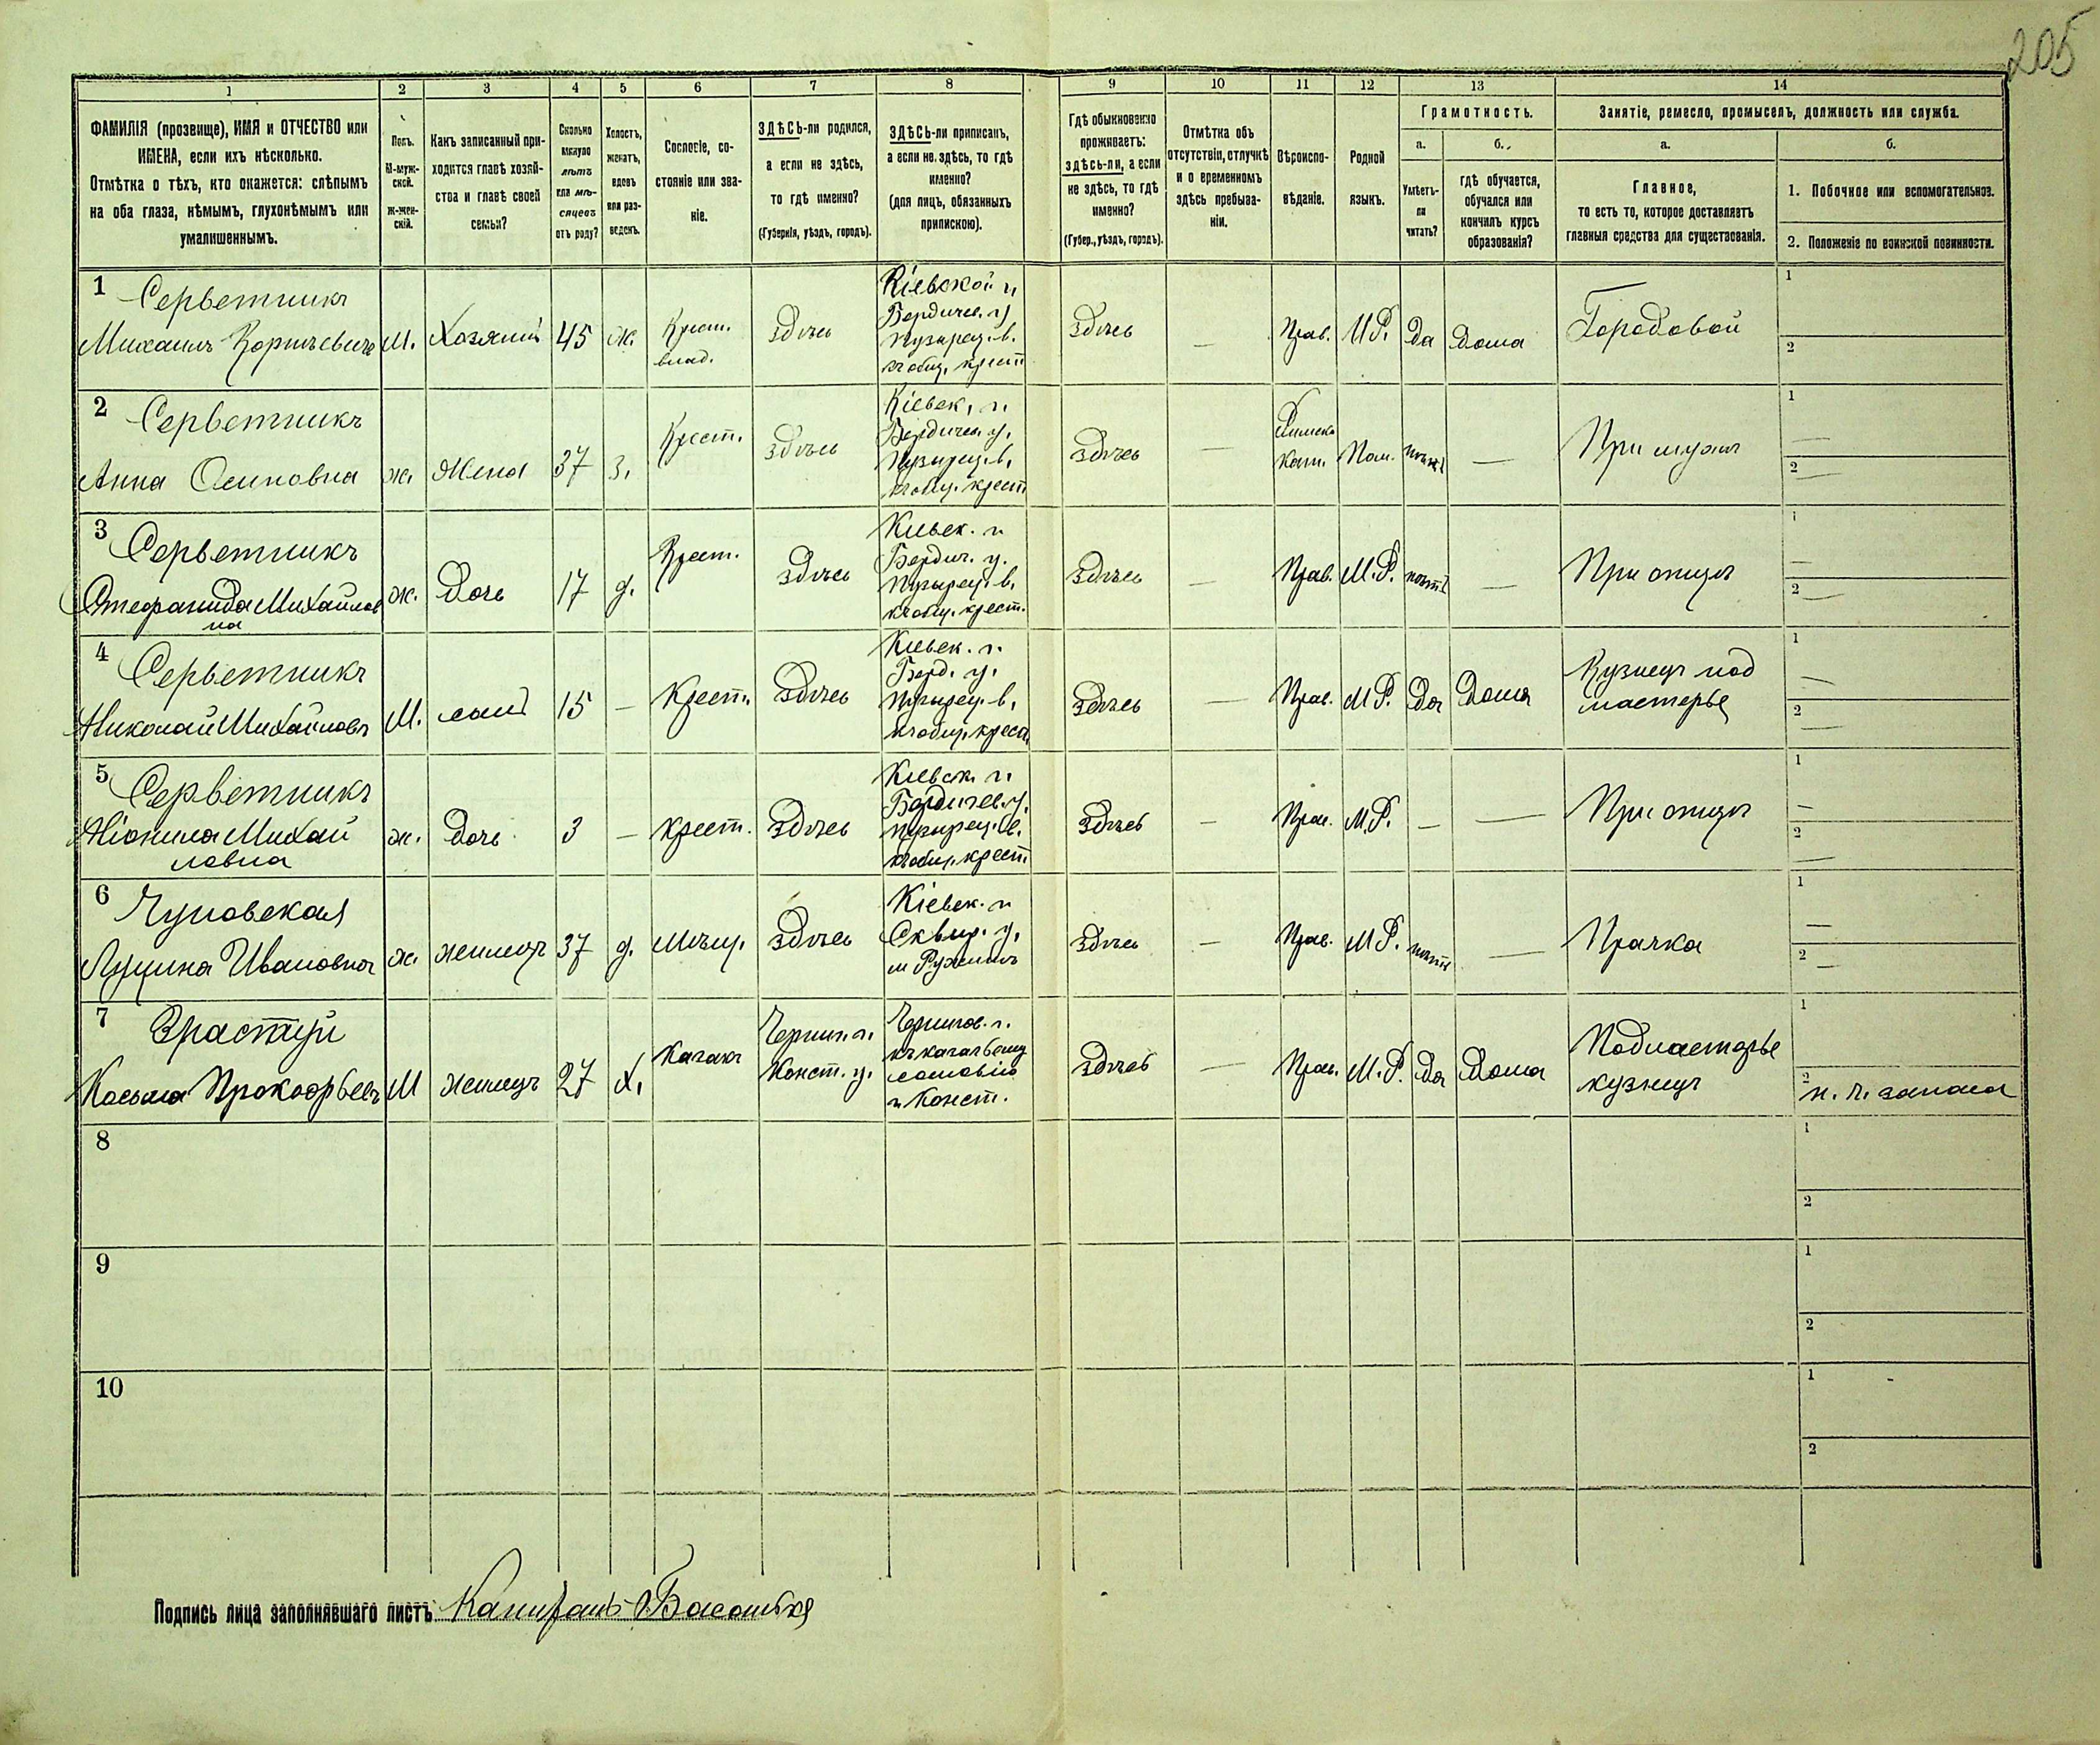 205
1 2 3 4 5 6 7 8 9 10 11 12 13 14
ФАМИЛІЯ (прозвище), ИМЯ и ОТЧЕСТВО или
ИМЕНА, если ихъ нѣсколько.
Отмѣтка о тѣхъ, кто окажется: слѣпымъ
на оба глаза, нѣмымъ, глухонѣмымъ или
умалишеннымъ.
Полъ.
М-муж-
ской.
Ж-жен-
скій.
Какъ записанный при-
ходится главѣ хозяй-
ства и главѣ своей
семьи?
Сколько
минуло
лѣтъ
или мѣ-
сяцевъ
отъ роду?
Холостъ,
женатъ,
вдовъ
или раз-
веденъ.
Сословіе, со-
стояніе или зва-
ніе.
ЗДѢСЬ-ли родился,
а если не здѣсь,
то гдѣ именно?
(Губернія, уѣздъ, городъ).
ЗДѢСЬ-ли приписанъ,
а если не здѣсь, то гдѣ
именно?
(для лицъ, обязанныхъ
припискою).
Гдѣ обыкновенно
проживаетъ:
здѣсь-ли, а если
не здѣсь, то гдѣ
именно?
(Губер., уѣздъ, городъ).
Отмѣтка объ
отсутствіи, отлучкѣ
и о временномъ
здѣсь пребыва-
ніи.
Вѣроиспо-
вѣданіе.
Родной
языкъ.
Грамотность.
а.
Умѣетъ-
ли
читать?
б.
гдѣ обучается,
обучался или
кончилъ курсъ
образованія?
Занятіе, ремесло, промыселъ, должность или служба.
а.
Главное,
то есть то, которое доставляетъ
главныя средства для существованія.
б.
1. Побочное или вспомогательное.
2. Положеніе по воинской повинности.
1 Серветникъ
Михаилъ Корнѣевичъ М. Хозяинъ 45 ж. Крест.
влад. здѣсь
Кіевской г.
Бердичев. у.
Пузырец. в.
къ общ. крест.
здѣсь — Прав. М.Р. Да Дома Городовой 1
2
2 Серветникъ
Анна Осиповна ж. Жена 37 з. Крест. здѣсь
Кіевск. г.
Бердичев. у.
Пузырец. в.
къ общ. крест
здѣсь — Римско
Кат. Пол. нѣтъ — При мужѣ 1 —
2 —
3 Серветникъ
Стефанида Михайлов
на ж. Дочь 17 д. Крест. здѣсь
Кіевск. г.
Бердич. у.
Пузырец. в.
къ общ. крест.
здѣсь — Прав. М.Р. нѣтъ — При отцѣ 1 —
2 —
4 Серветникъ
Николай Михайловъ М. сынъ 15 — Крест. здѣсь
Кіевск. г.
Берд. у.
Пузырец. в.
къ общ. крест.
здѣсь — Прав. М.Р. Да Дома Кузнецъ под
мастерье 1 —
2 —
5 Серветникъ
Нионила Михай
ловна ж. Дочь 3 — крест. здѣсь
Кіевск. г.
Бердичев. у.
Пузырец. в.
къ общ. крест
здѣсь — Прав. М.Р. — — При отцѣ 1 —
2 —
6
Иванова ж. жилица 37 д. Мѣщ. здѣсь
Кіевск. г.
Сквир. у.
м Ружинъ
здѣсь — Прав. М.Р. нѣтъ — Прачка 1 —
2 —
7
Косьма Прокофьевъ М жилецъ 27 х. Казакъ
Черниг. г.
Конст. у.
Чернигов. г.
къ казачьему
сословію
Конст.
здѣсь — Прав. М.Р. Да Дома Подмастерье
кузнецъ 1
2 н. ч. запаса
8 1
2
9 1
2
10 1
2
Подпись лица заполнявшаго листъ: